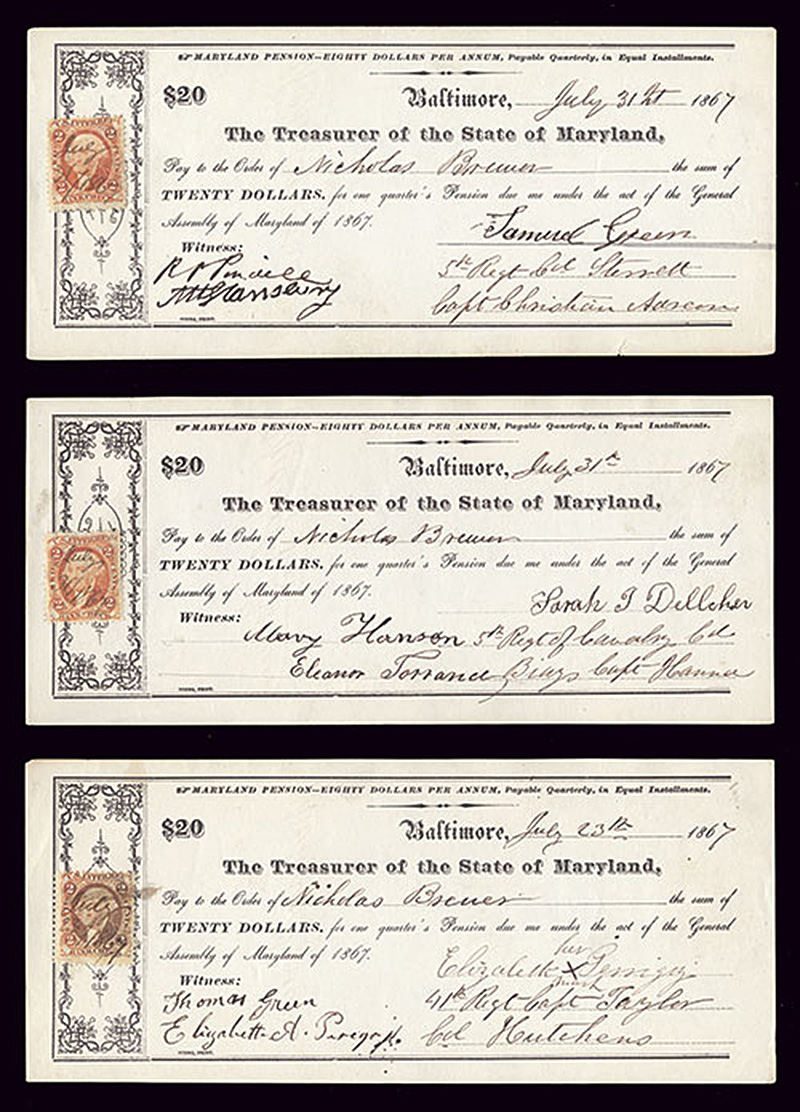 MARYLAND PENSION—EIGHTY DOLLARS PER ANNUM, Payable Quarterly, in Equal Installments.
$20 Baltimore, July 31st 1867
The Treasurer of the State of Maryland,
Pay to the Order of Nicholas Brewer the sum of
TWENTY DOLLARS, for one quarter's Pension due me under the act of the General
Assembly of Maryland of 1867.
Samuel Green
Witness:
5th Regt Col Sterrett
Capt Christian
MARYLAND PENSION—EIGHTY DOLLARS PER ANNUM, Payable Quarterly, in Equal Installments.
$20 Baltimore, July 31st 1867
The Treasurer of the State of Maryland,
Pay to the Order of Nicholas Brewer the sum of
TWENTY DOLLARS, for one quarter's Pension due me under the act of the General
Assembly of Maryland of 1867.
Sarah
Witness:
Mary Hanson 5th Regt of Cavalry Col
Eleanor Torrance Biays Capt Hanna
MARYLAND PENSION—EIGHTY DOLLARS PER ANNUM, Payable Quarterly, in Equal Installments.
$20 Baltimore, July 23th 1867
The Treasurer of the State of Maryland,
Pay to the Order of Nicholas Brewer the sum of
TWENTY DOLLARS, for one quarter's Pension due me under the act of the General
Assembly of Maryland of 1867.
her
Elizabeth X
mark
Witness:
Thomas Green 41th Regt Capt Taylor
Elizabeth A. Col Hutchens